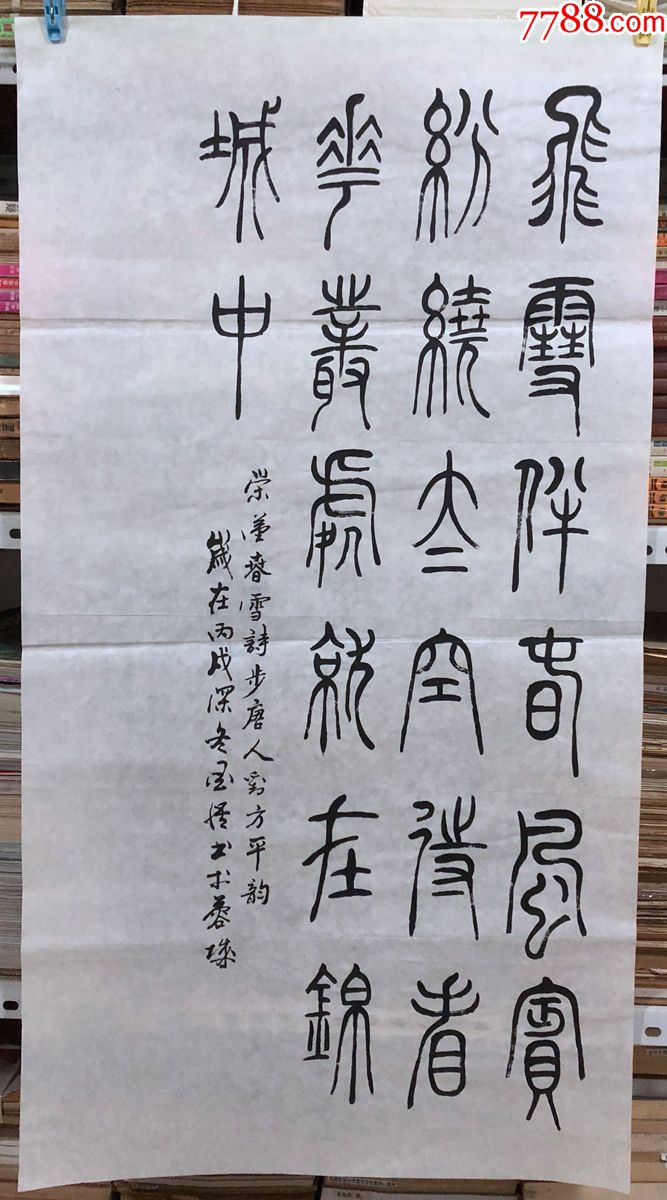 7788.com
飛雪伴春風賓
紛繞太空待看
華叢處就在錦
城中
春雪詩步唐人劉方平韵
歲在丙戌深冬書於蓉城